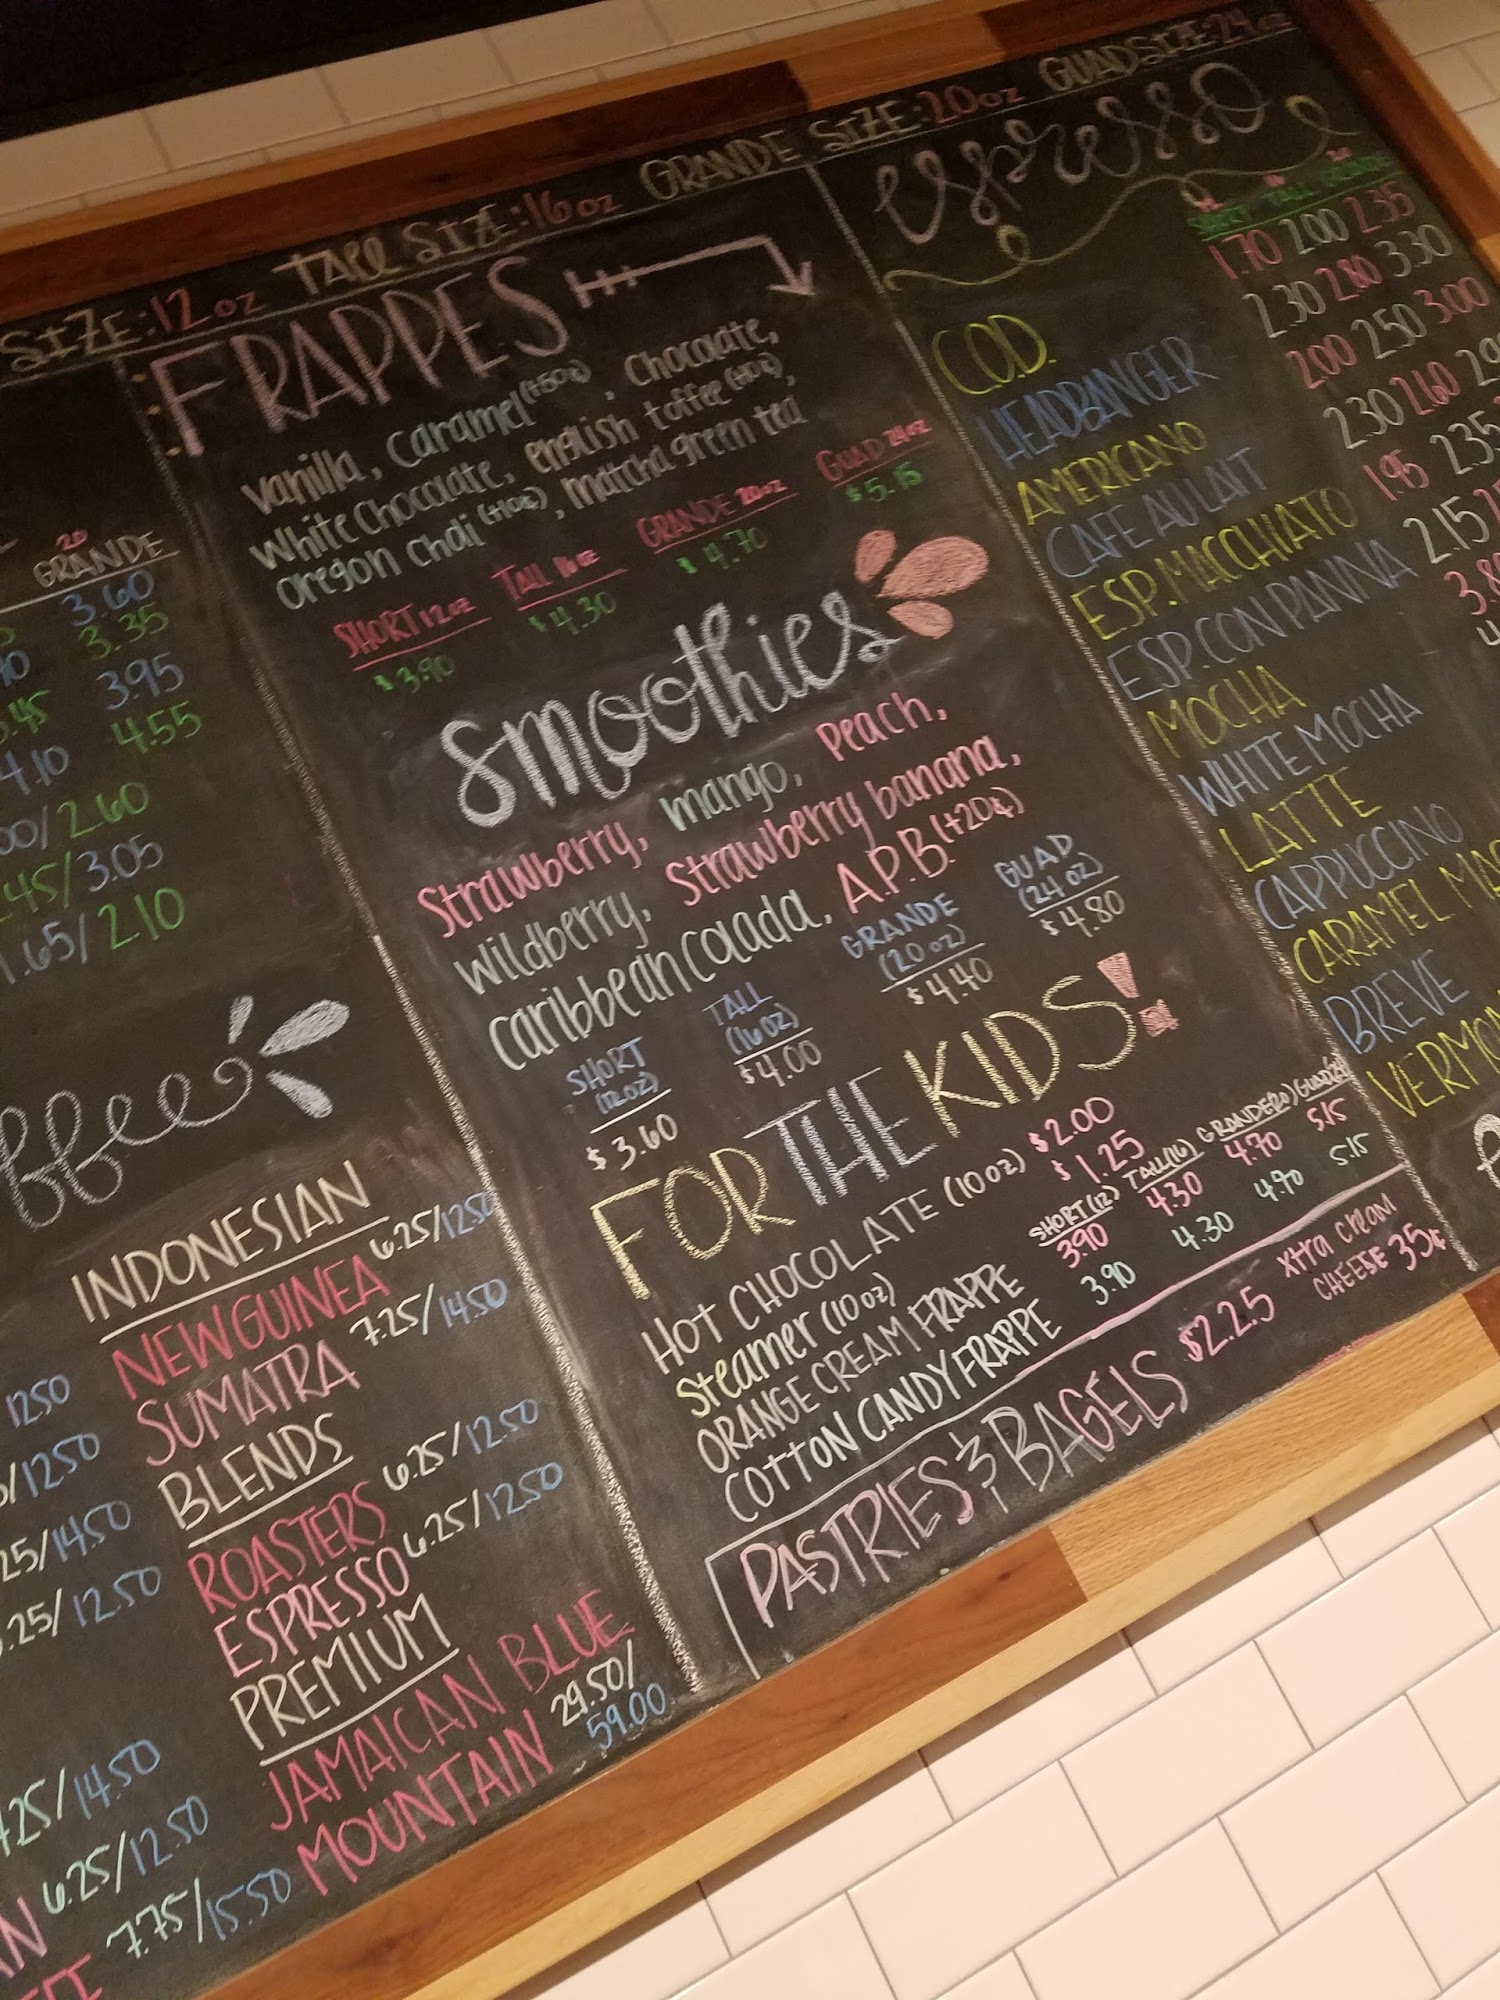 SIZE: 12oz TALL SIZE: 16oz GRANDE SIZE: 20oz GUAD SIZE: 24oz
20
GRANDE
3.60
3.35
3.95
4.55
4.10
2.60
45/3.05
1.65/2.10
INDONESIAN
NEW GUINEA 6.25/12.50
SUMATRA 7.25/14.50
BLENDS
ROASTERS 6.25/12.50
ESPRESSO 6.25/12.50
PREMIUM
JAMAICAN BLUE
MOUNTAIN 29.50/
59.00
1250
1250
25/14.50
.25/12.50
.25/14.50
6.25/12.50
7.75/15.50
FRAPPES
vanilla, caramel (+50¢), chocolate,
white chocolate, english toffee (+10¢),
oregon chai (+10¢), matcha green tea
SHORT 12oz TALL 16oz GRANDE 20oz GUAD 24oz
$3.90 $4.30 $4.70 $5.15
smoothies
strawberry, mango, peach,
wildberry, strawberry banana,
caribbean colada, A.P.B. (+20¢)
SHORT TALL GRANDE GUAD
(12oz) (16oz) (20oz) (24oz)
$3.60 $4.00 $4.40 $4.80
FOR THE KIDS!
HOT CHOCOLATE (10oz) $2.00
steamer (10oz) $1.25
SHORT (12) TALL (16) GRANDE (20) GUAD (24)
ORANGE CREAM FRAPPE 3.90 4.30 4.70 5.15
COTTON CANDY FRAPPE 3.90 4.30 4.70 5.15
PASTRIES & BAGELS $2.25 xtra cream
CHEESE 35¢
espresso
SHORT TALL GRANDE
C.O.D. 1.70 2.00 2.35
HEADBANGER 2.30 2.80 3.30
AMERICANO 2.00 2.50 3.00
CAFE AU LAIT 2.30 2.60
ESP. MACCHIATO 1.95 2.35
ESP. CON PANNA 2.15
MOCHA
WHITE MOCHA
LATTE
CAPPUCCINO
CARAMEL
BREVE